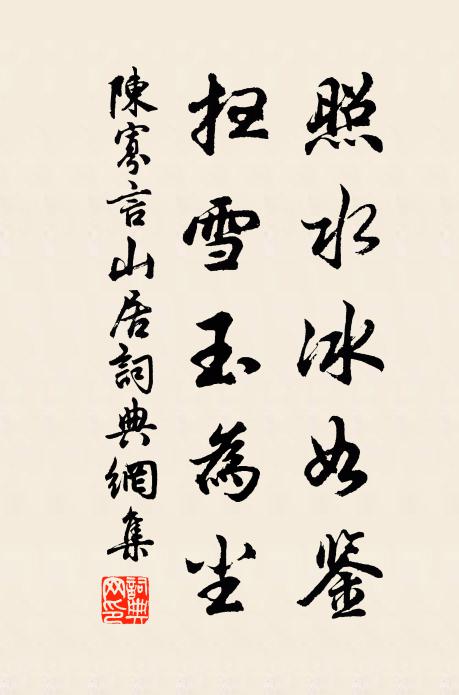 照水冰如鑒
扫雪玉為尘
陳寡言山居詞典網集
詞典
网印